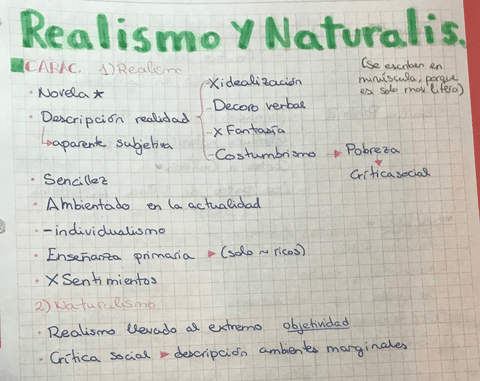 Realismo Y Naturalis.
CARAC. 1) Realismo
(Se escriben en
minúscula, porque
es solo mov. litera)
· Novela *
· Descripción realidad
↳ aparente subjetiva
- X idealización
- Decoro verbal
- X Fantasía
- Costumbrismo → Pobreza
Crítica social
· Sencillez
· Ambientado en la actualidad
· - individualismo
· Enseñanza primaria ▸ (solo ~ ricos)
· X Sentimientos
2) Naturalismo
· Realismo llevado al extremo objetividad
· Crítica social ▸ descripción ambientes marginales